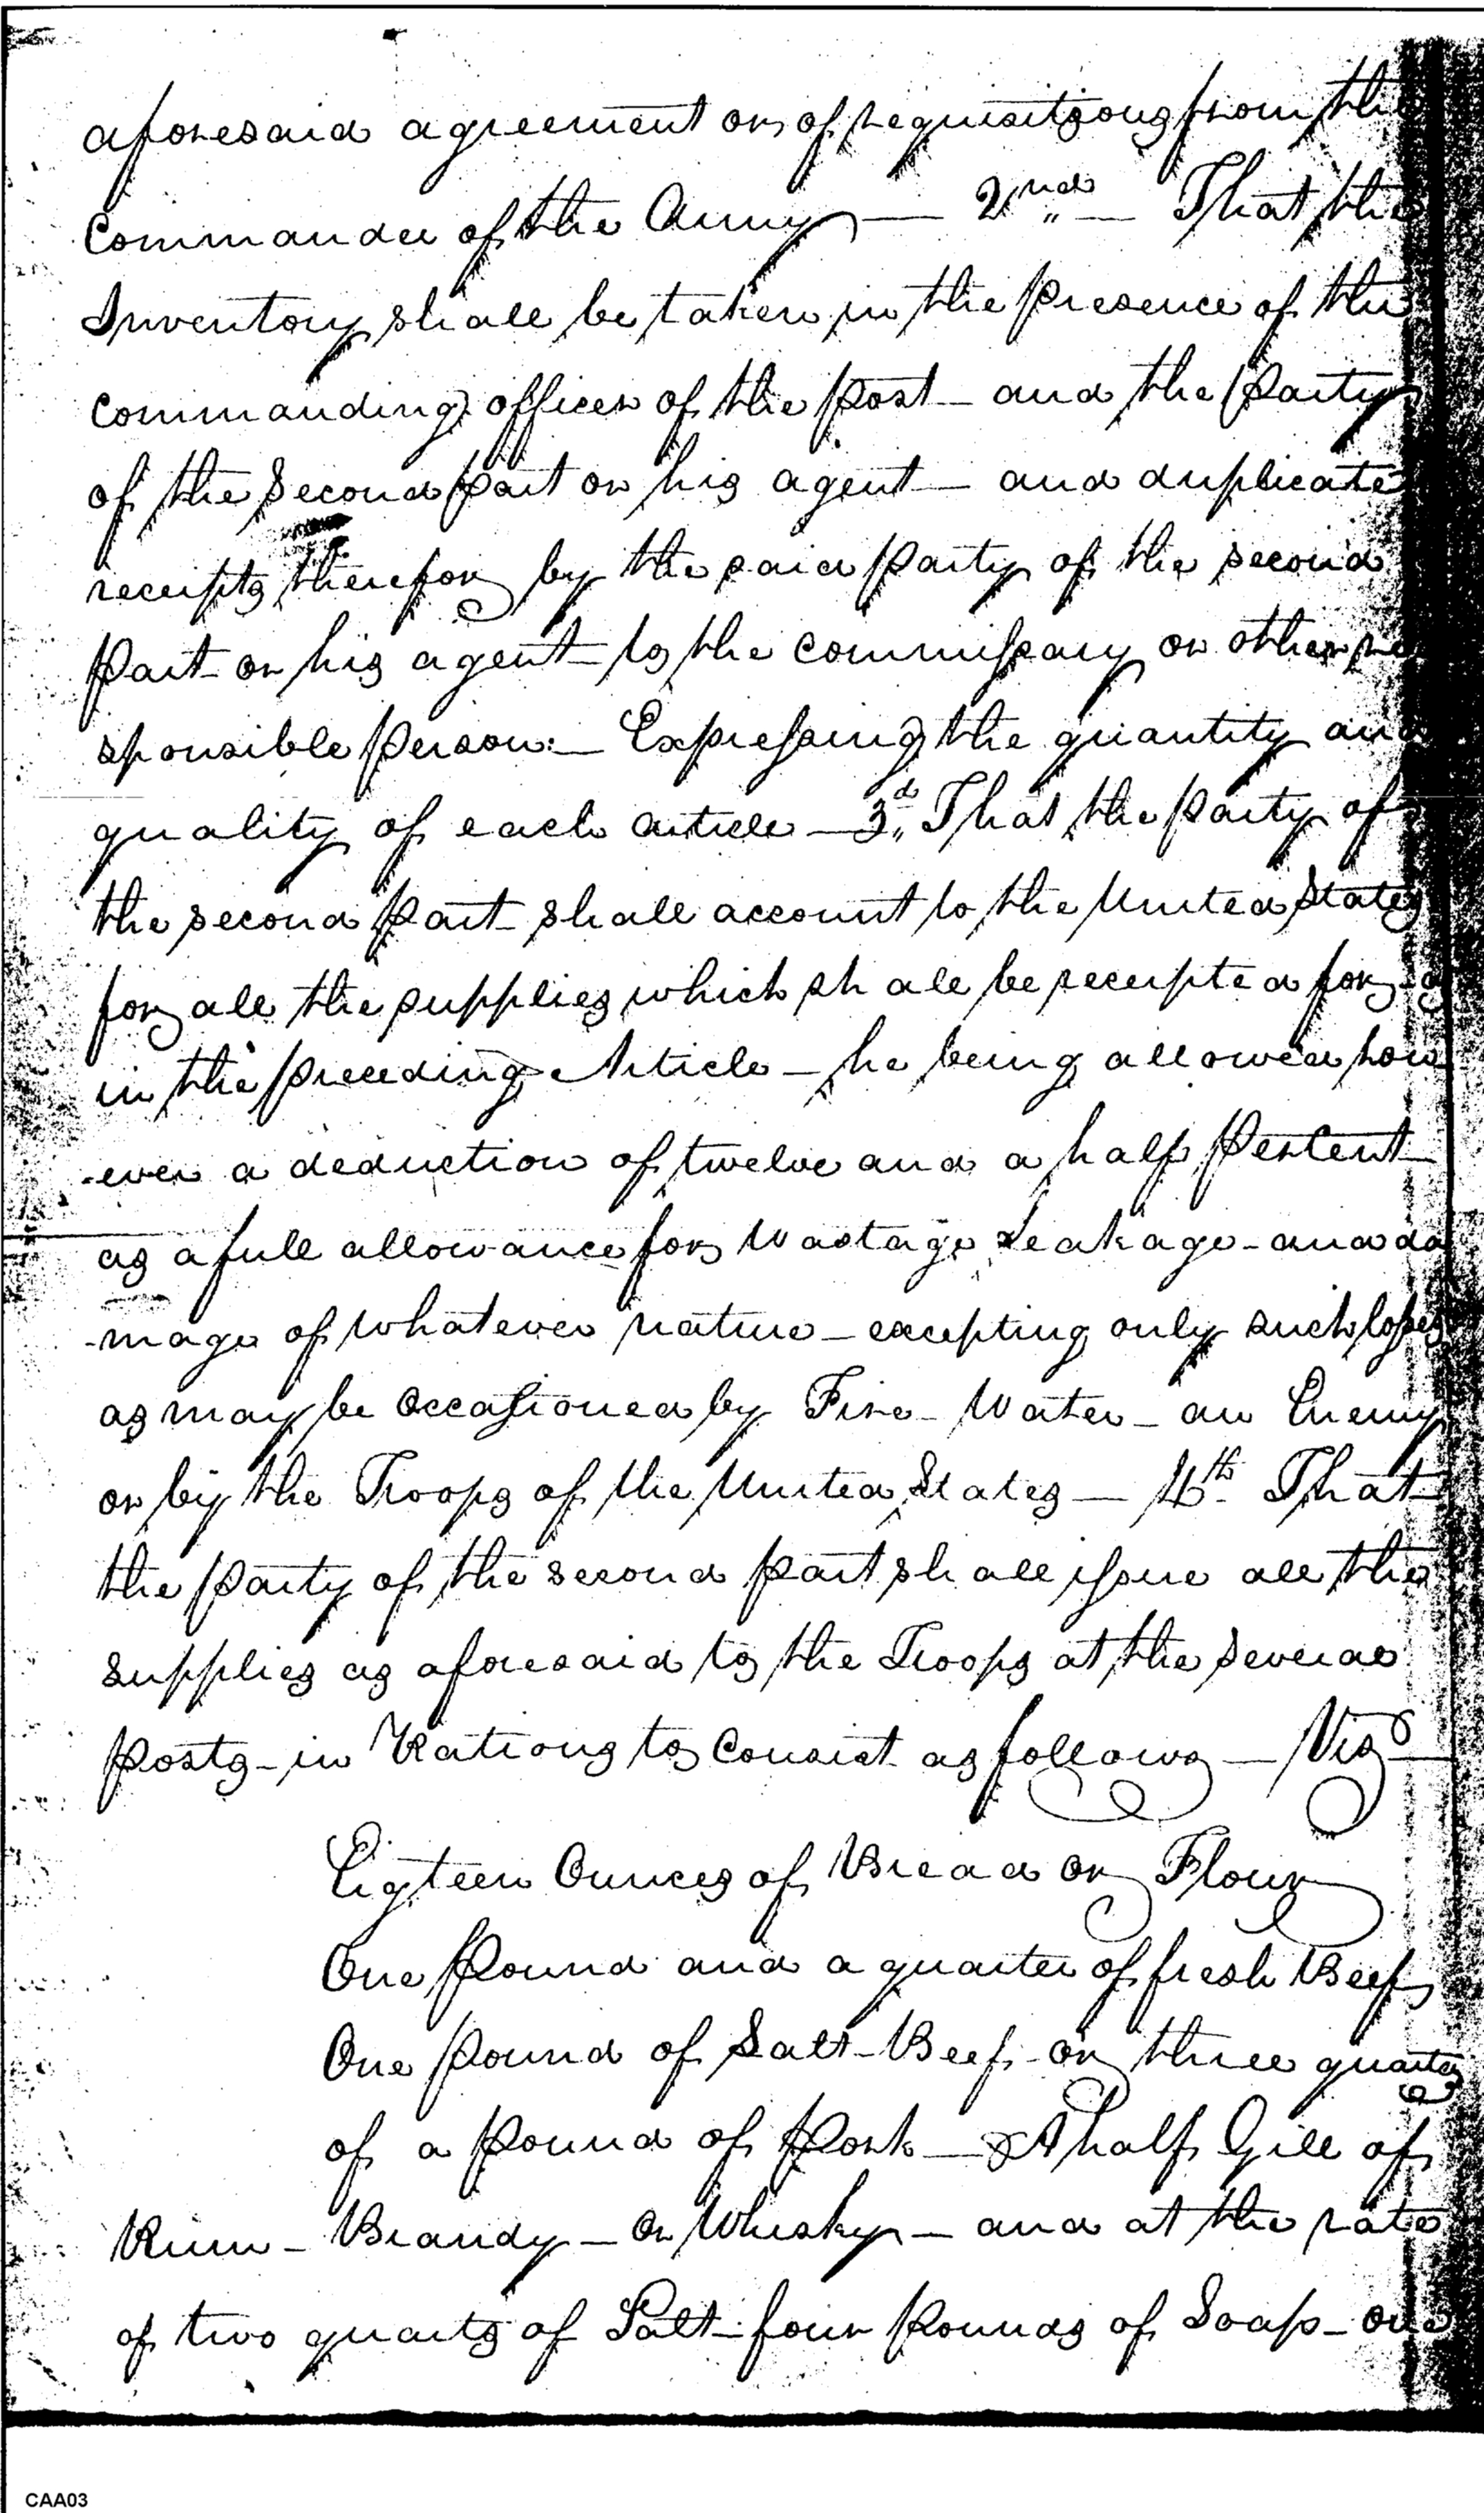 aforesaid agreement or of requisitions from the
Commander of the Army — 2nd — That the
Inventory shall be taken in the presence of the
commanding officer of the Post — and the Party
of the Second Part or his agent — and duplicate
receipts therefor by the said Party of the second
Part or his agent to the commissary or other re
sponsible Person:— Expressing the quantity and
quality of each article — 3d. That the Party of
the second Part shall account to the United States
for all the supplies which shall be receipted for as
in the preceding Article — he being allowed how
-ever a deduction of twelve and a half Per Cent
as a full allowance for Wastage Leakage - and da
-mage of Whatever nature — excepting only such losses
as may be Occasioned by Fire — Water — an Enemy
or by the Troops of the United States — 4th. That
the Party of the second Part shall issue all the
supplies as aforesaid to the Troops at the several
Posts - in Rations to Consist as follows — Viz
Eigteen Ounces of Bread or Flour
One Pound and a quarter of fresh Beef
One Pound of Salt - Beef - or three quarters
of a Pound of Pork — A half Gill of
Rum - Brandy - Or Whisky - and at the rate
of two quarts of Salt - four Pounds of Soap - one
CAA03